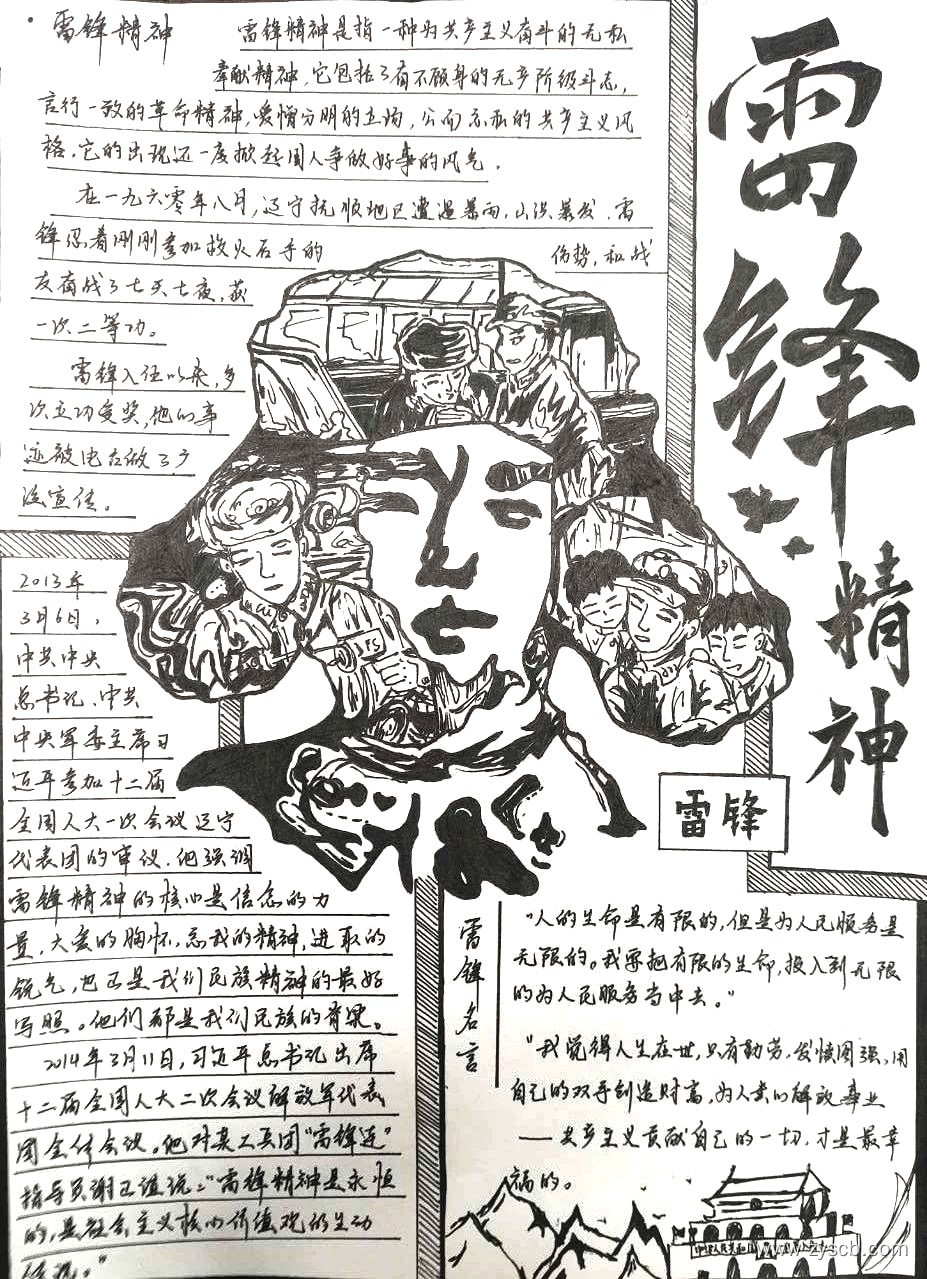 雷锋精神
雷锋精神是指一种为共产主义奋斗的无私
奉献精神，它包括了奋不顾身的无产阶级斗志，
言行一致的革命精神，爱憎分明的立场，公而忘私的共产主义风
格，它的出现还一度掀起国人争做好事的风气。
在一九六零年八月，辽宁抚顺地区遭遇暴雨，山洪暴发，雷
锋忍着刚刚参加救火后手的
伤势，和战
友奋战了七天七夜，获
一次二等功。
雷锋入伍以来，多
次立功受奖，他的事
迹被电台做了广
泛宣传。
雷
锋
精
神
2013年
3月6日，
中共中央
总书记、中共
中央军委主席习
近平参加十二届
全国人大一次会议辽宁
代表团的审议，他强调
雷锋精神的核心是信念的力
量，大爱的胸怀，忘我的精神，进取的
锐气，也正是我们民族精神的最好
写照。他们都是我们民族的脊梁。
2014年3月11日，习近平总书记出席
十二届全国人大二次会议解放军代表
团全体会议。他对某工兵团"雷锋连"
指导员谢正谊说："雷锋精神是永恒
的，是社会主义核心价值观的生动
体现。"
雷锋
雷锋名言
"人的生命是有限的，但是为人民服务是
无限的。我要把有限的生命，投入到无限
的为人民服务当中去。"
"我觉得人生在世，只有勤劳，发愤图强，用
自己的双手创造财富，为人类的解放事业
——共产主义贡献自己的一切，才是最幸
福的。
www.zyscb.com